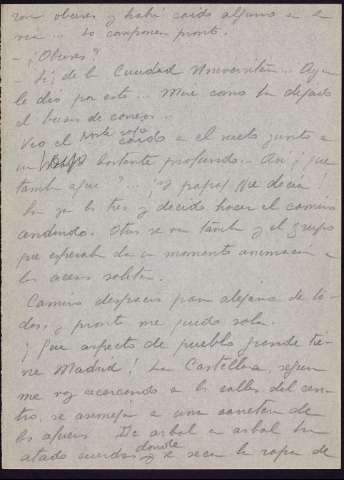 ron obuses y había caído alguno en la
vía... Lo componen pronto.
- ¿Obuses?
- Sí; de la Ciudad Universitaria... Ayer
le dió por esto... Mire como ha dejado
el buzón de correos...
Veo el poste rojo caído en el suelo junto a
un hoyo bastante profundo... ¡Ah! ¿que
también aquí?... ¡y papá que decía!
Son ya las tres y decido hacer el camino
andando. Otros se van también y el grupo
que esperaba da un momento animación a
las aceras solitarias.
Camino despacio para alejarme de to-
dos y pronto me quedo sola.
¡Que aspecto de pueblo grande tie-
ne Madrid! La Castellana, según
me voy acercando a las calles del cen-
tro, se asemeja a una carretera de
las afueras. De arbol a arbol han
atado cuerdas donde se seca la ropa de